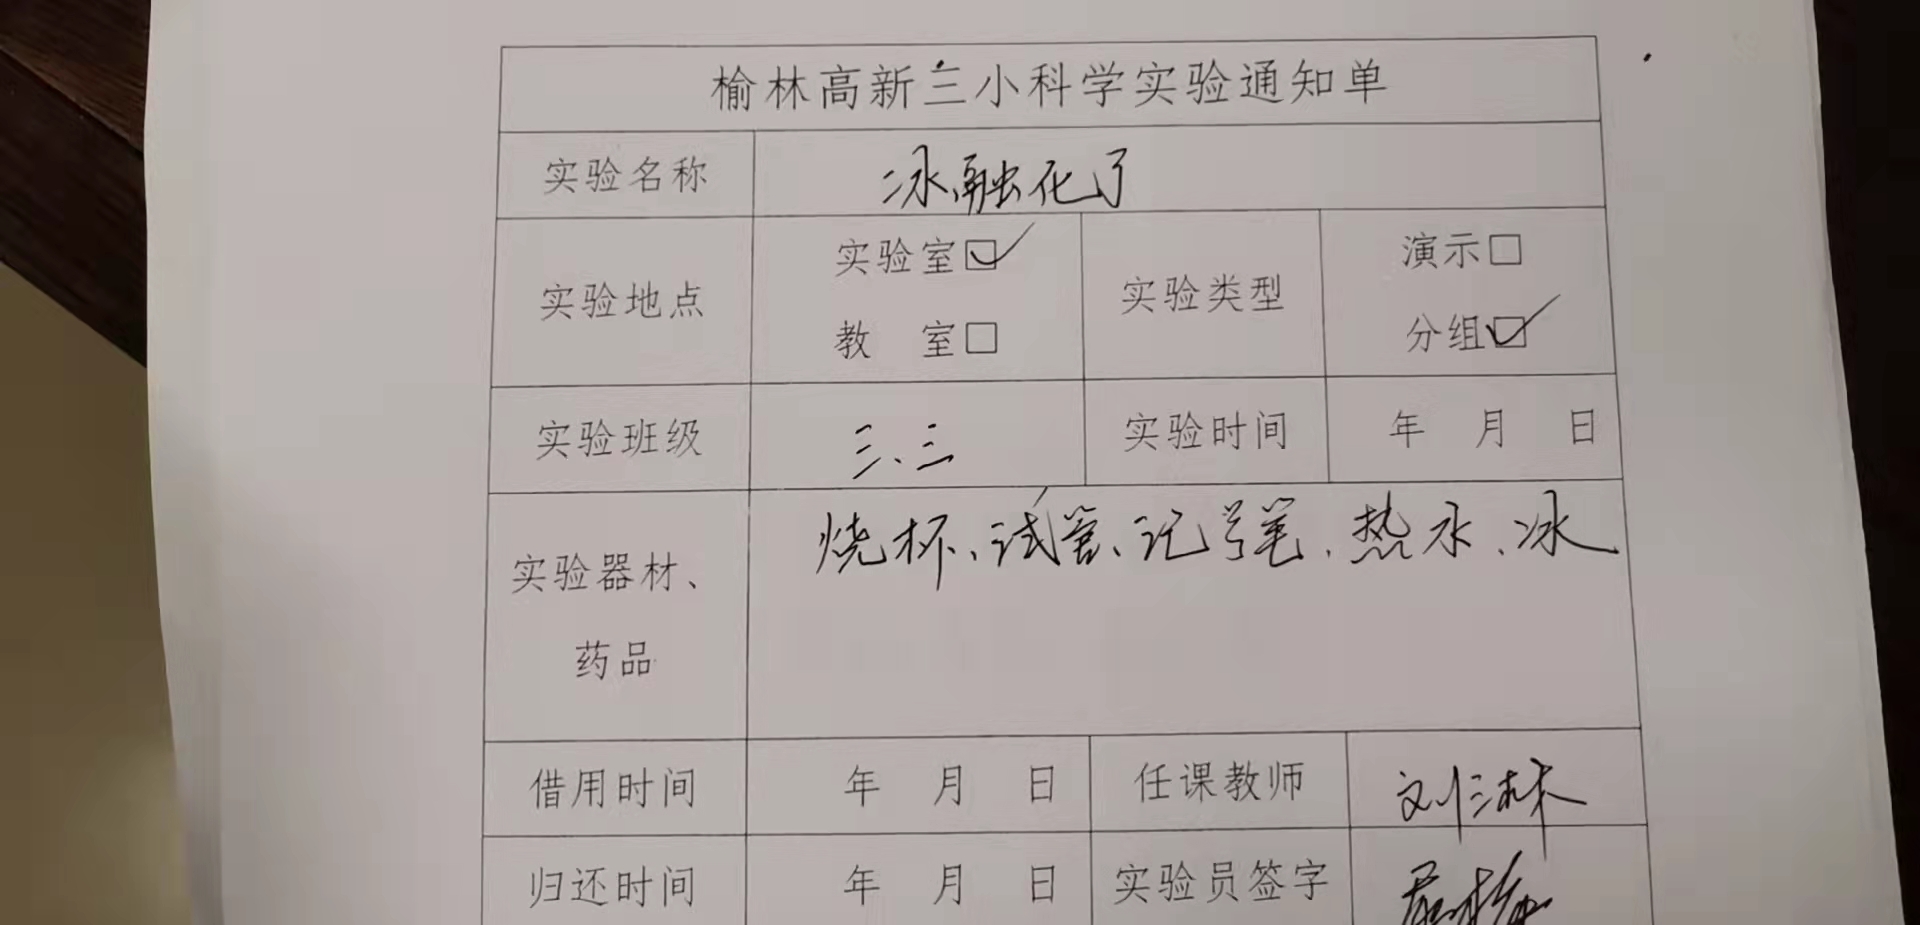 榆林高新三小科学实验通知单
实验名称 冰融化了
实验地点 实验室☑ 教 室□ 实验类型 演示□ 分组☑
实验班级 三、三 实验时间 年 月 日
实验器材、药品 烧杯、试管、记号笔、热水、冰
借用时间 年 月 日 任课教师 刘三林
归还时间 年 月 日 实验员签字